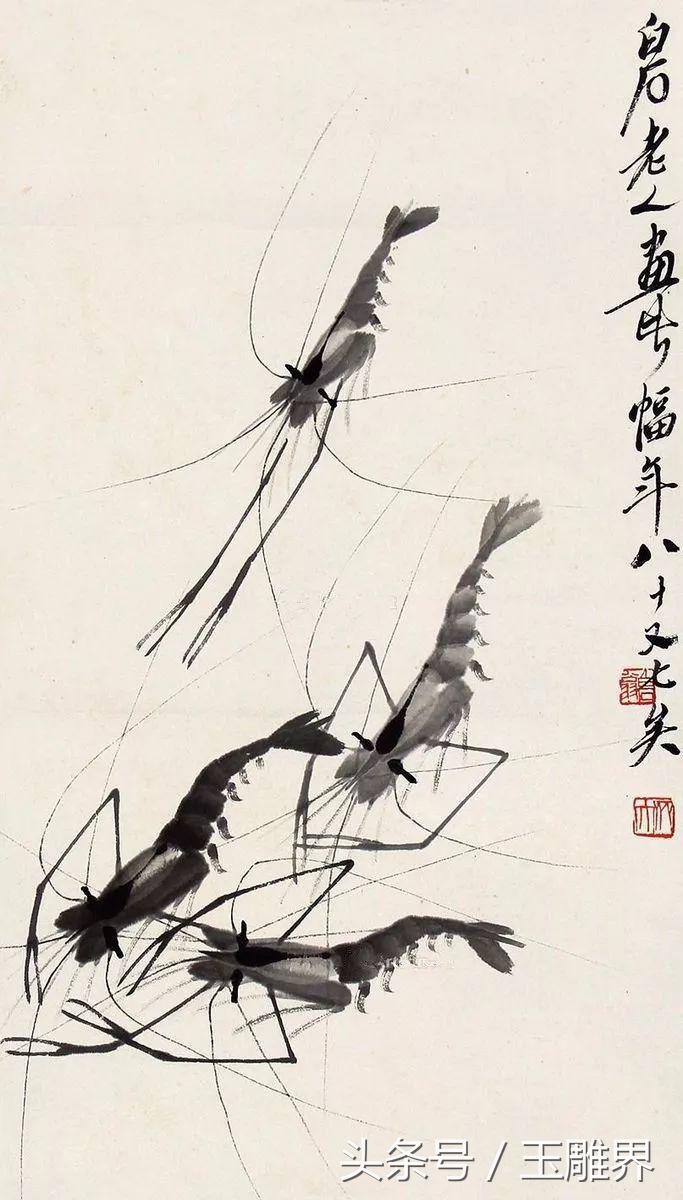 白石老人畫此幅年八十又七矣
头条号 / 玉雕界